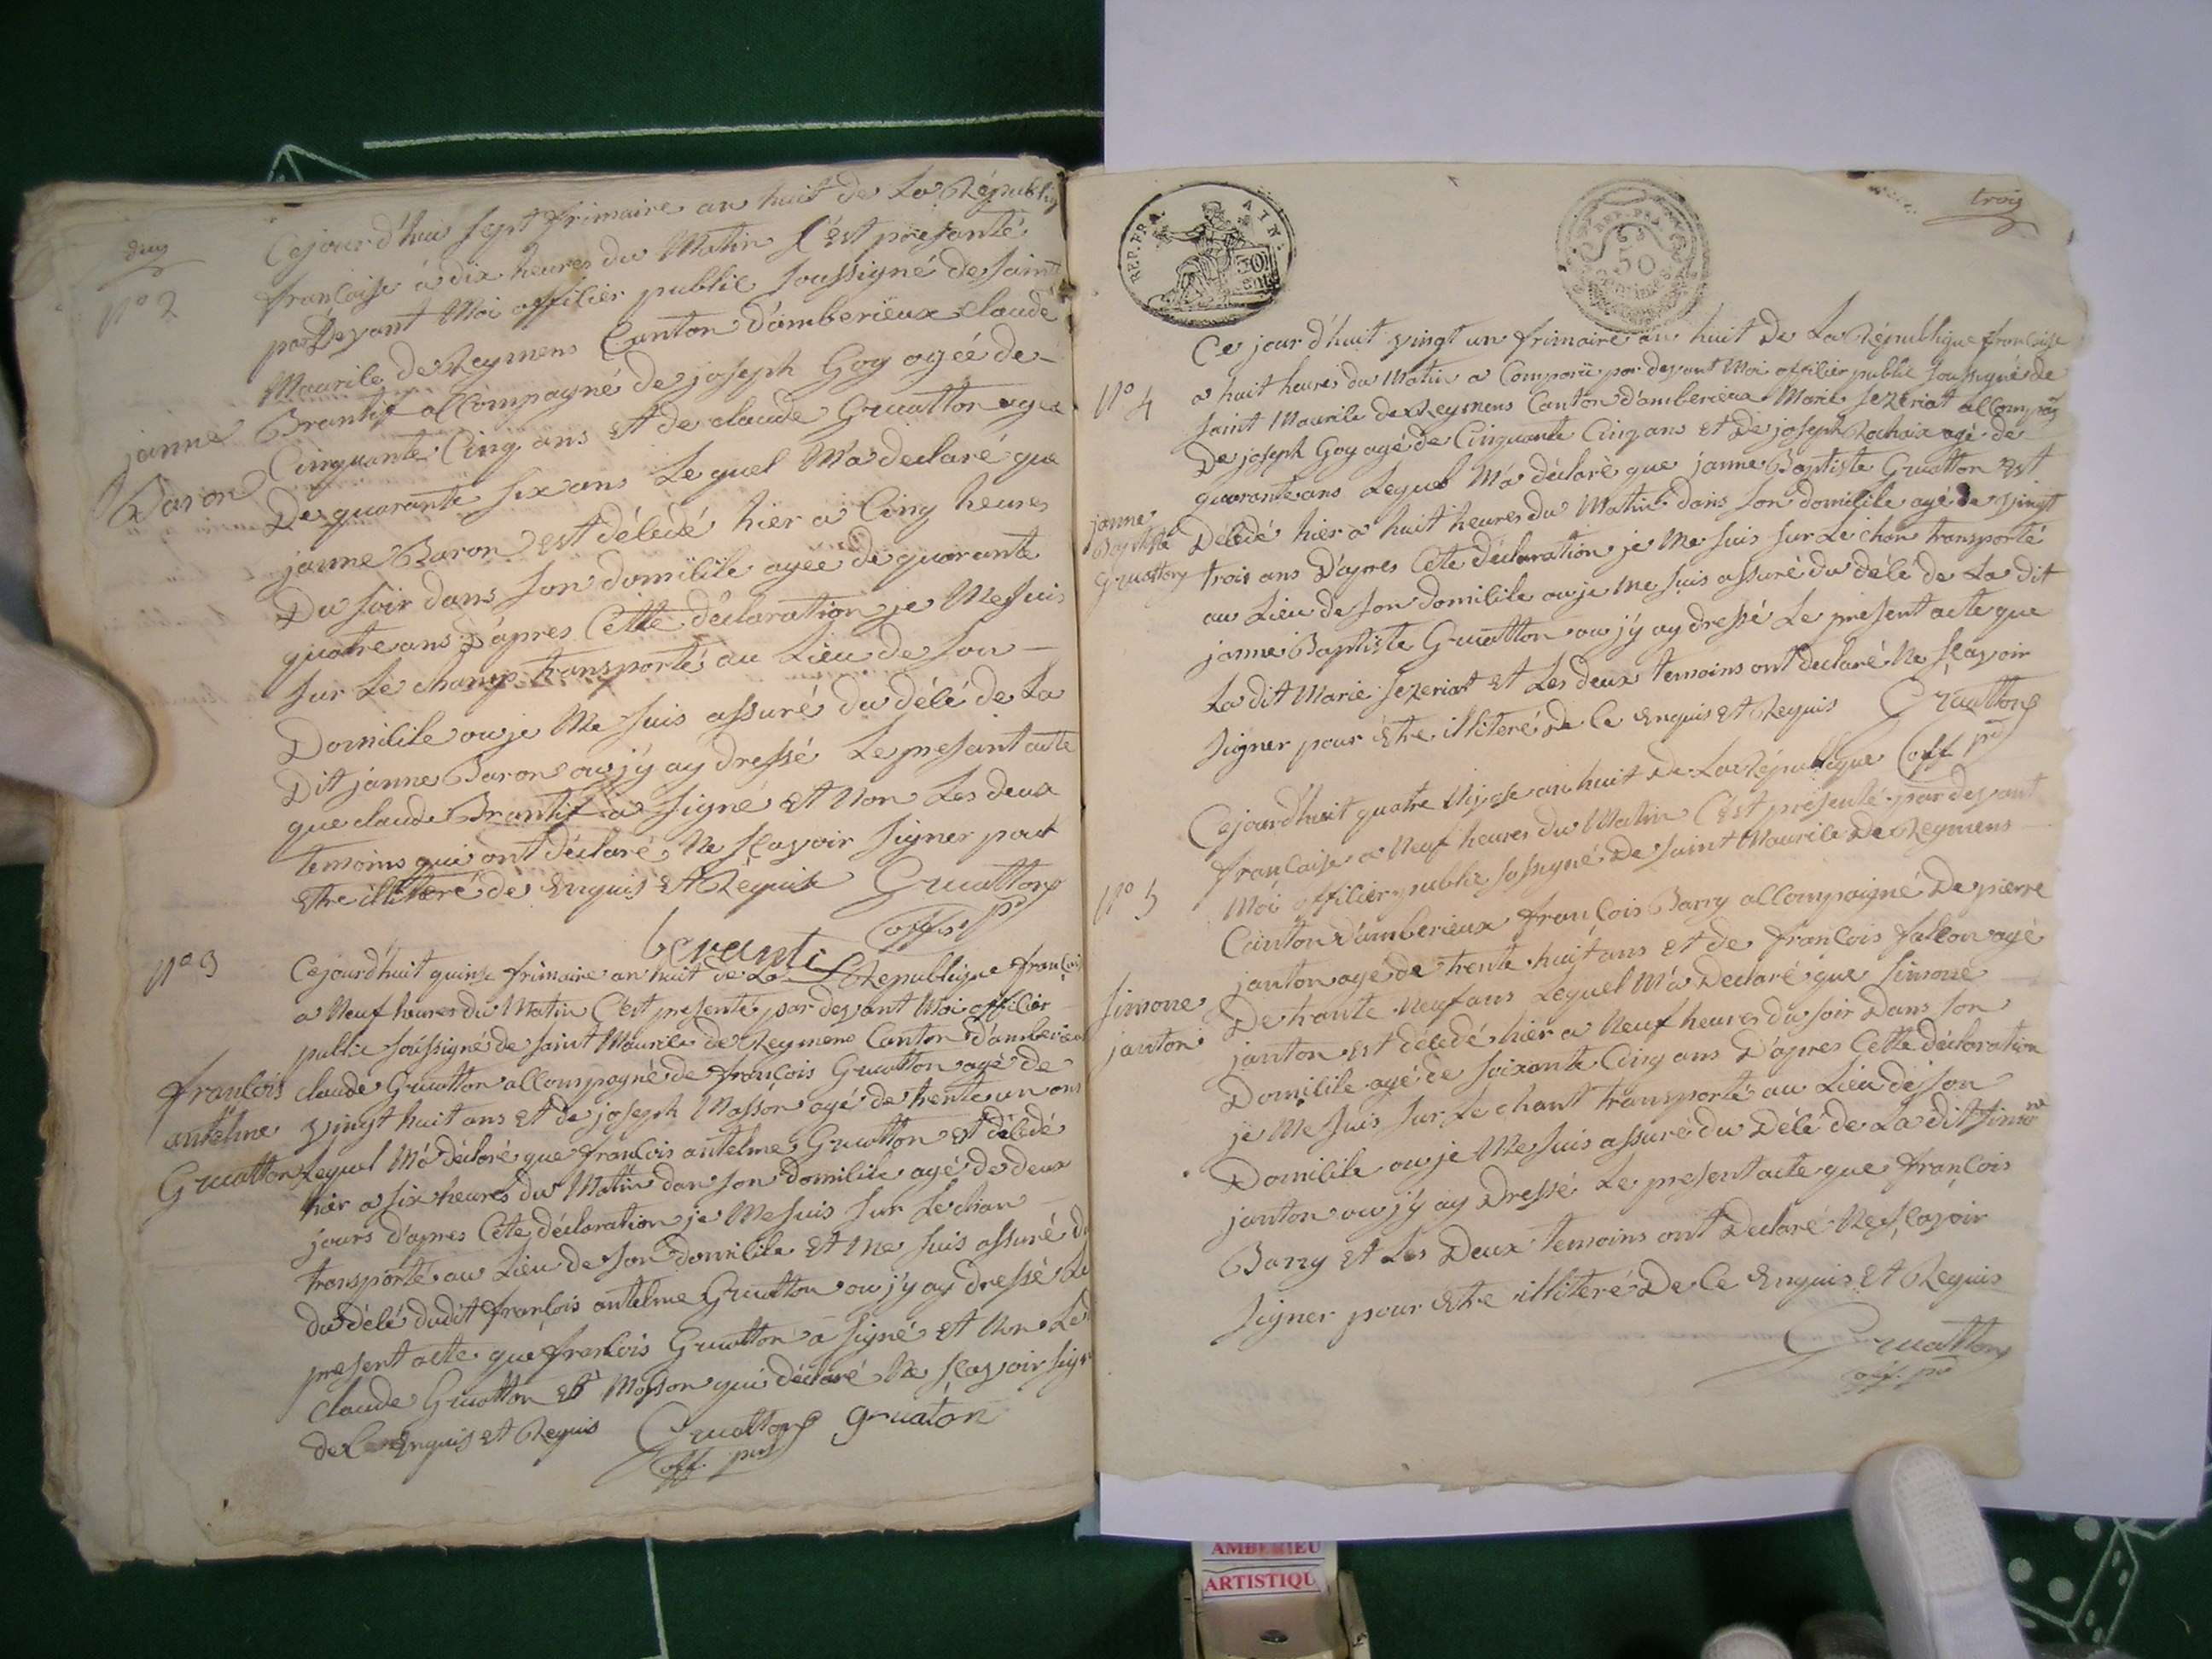 deux
N° 2
janne
Baron
Cejourd'hui sept frimaire an huit de La Républiq
française à dix heures du Matin s'est présanté
pardevant Moi officier public soussigné de saint
Maurile de Reymens Canton d'amberieux claude
Brantif accompagné de joseph Goy agéé de
Cinquante Cinq ans et de claude Gruatton age
De quarante six ans Le quel M'a declaré que
janne Baron est décedé hier a Cinq heures
Du soir dans son domicile agee de quarante
quatre ans D'apres Cette déclaration je Me suis
sur Le champ transporté au Lieu de son
Domicile ou je Me suis assuré du décé de La
Dit janne Baron ou j'y ay dressé Le present acte
que claude Brantif a signé et Non Les deux
temoins qui ont déclaré Ne sçavoir signer pour
Etre illiteré de Enquis et Requis Gruatton
off. p.
branti
N° 3
françois
antelme
Gruatton
Cejourd'huit quinse frimaire an huit de La République franç
a Neuf heures du Matin C'est presenté par devant Moi officier
public soussigné de saint Maurile de Reymens Canton d'amberieu
claude Gruatton accompagné de françois Gruatton agé de
vingt huit ans et de joseph Masson agé de trente un ans
Lequel M'a déclaré que françois antelme Gruatton est décedé
hier a six heures du Matin dan son domicile agé de deux
jours d'apres Cete déclaration je Me suis sur Le chan
transporté au Lieu de son domicile et me suis assuré d
du décé dudit françois antelme Gruatton ou j'y ay dressé Le
present acte que françois Gruatton a signé et Non Lé
claude Gruatton et Masson qui déclaré Ne sçavoir sign
de Ce Enquis et Requis Gruatton gruaton
off. p.
REP. FRA. ATN.
50
REP. FRA
50
trois
N° 4
janne
Baptiste
Gruatton
Ce jour d'huit vingt un frimaire an huit De La République française
a huit heures du Matin a Comparü par devant Moi officier public soussigné de
saint Maurile de Reymens Canton d'amberieux Marie sezeriat accompag
De joseph Goy agé de Cinquante Cinq ans et De joseph Rochaix agé de
quarante ans Lequel M'a déclaré que janne Baptiste Gruatton est
Décedé hier a huit heures du Matin dans son domicile agé de vingt
trois ans D'apres Cete déclaration je Me suis sur Le chan transporté
au Lieu de son domicile ou je me suis assuré du décé de La dit
janne Baptiste Gruatton ou j'y ay dressé Le present acte que
La dit Marie sezeriat et Les deux temoins ont declaré Ne sçavoir
signer pour être illiteré De Ce Enquis et Requis Gruatton
off p.
N° 5
simone
janton
Cejourdhuit quatre Nivose an huit de La République
française a Neuf heures du Matin C'est présenté par devant
Moi officier public sossigné De saint Maurile De Reymens
Canton D'amberieux françois Barry accompaigné De pierre
janton agé de trente huit ans et de françois falcon agé
De trante Neuf ans Lequel M'a Declaré que simone
janton est décedé hier a Neuf heures du soir Dans son
Domicile agé de soixante Cinq ans D'apres Cette déclaration
je Me suis sur Le chant transporté au Lieu de son
Domicile ou je Me suis assuré du Décé de La dit simone
janton ou j'y ay Dressé Le present acte que françois
Barry et Les Deux temoins ont Declaré Ne sçavoir
signer pour Etre illiteré De Ce Enquis Et Requis
Gruatton
off. p.
AMBERIEU
ARTISTIQU